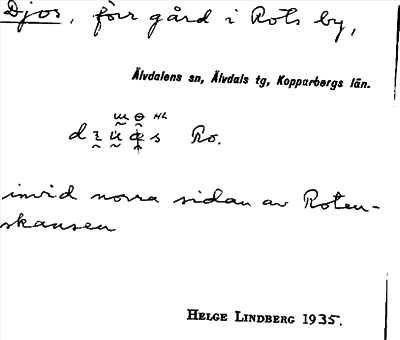 Djos, förr gård i Rots by,
Älvdalens sn, Älvdals tg, Kopparbergs län.
Ro.
invid norra sidan av Roten-
skansen
HELGE LINDBERG 1935.